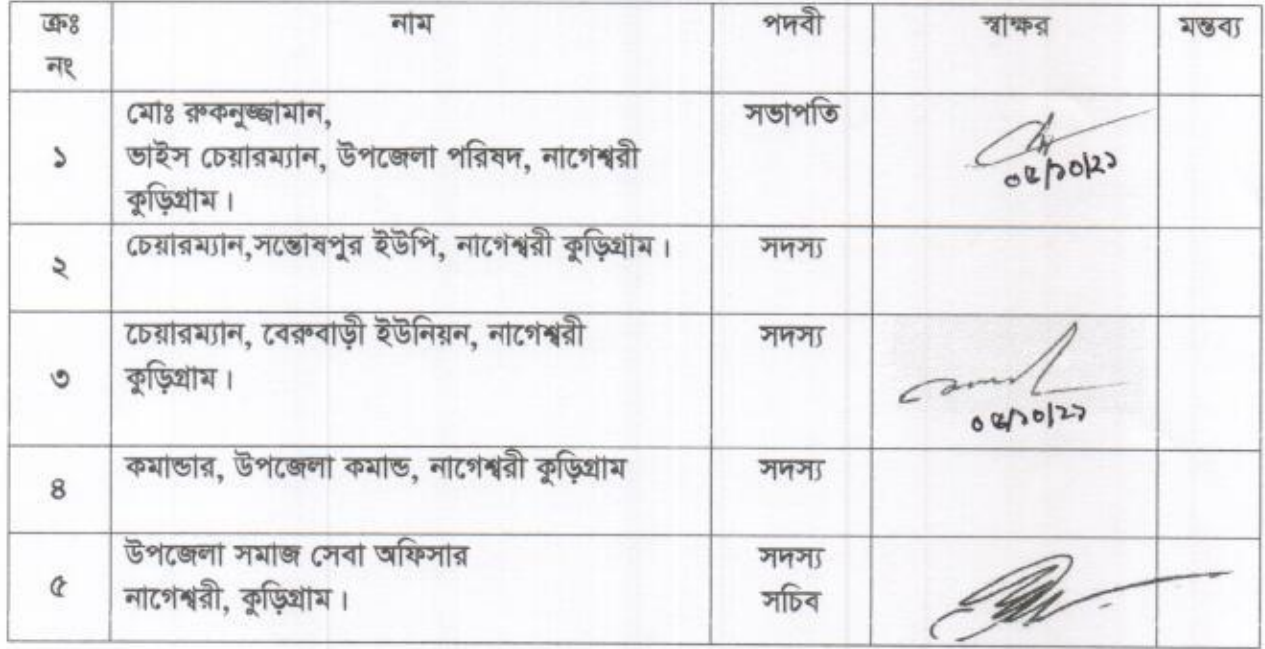 ক্রঃ নং নাম পদবী স্বাক্ষর মন্তব্য
মোঃ রুকনুজ্জামান, সভাপতি
১ ভাইস চেয়ারম্যান, উপজেলা পরিষদ, নাগেশ্বরী
কুড়িগ্রাম।
০৫/১০/২১
২ চেয়ারম্যান,সন্তোষপুর ইউপি, নাগেশ্বরী কুড়িগ্রাম। সদস্য
চেয়ারম্যান, বেরুবাড়ী ইউনিয়ন, নাগেশ্বরী সদস্য
৩ কুড়িগ্রাম।
০৫/১০/২১
৪ কমান্ডার, উপজেলা কমান্ড, নাগেশ্বরী কুড়িগ্রাম সদস্য
উপজেলা সমাজ সেবা অফিসার সদস্য
৫ নাগেশ্বরী, কুড়িগ্রাম। সচিব